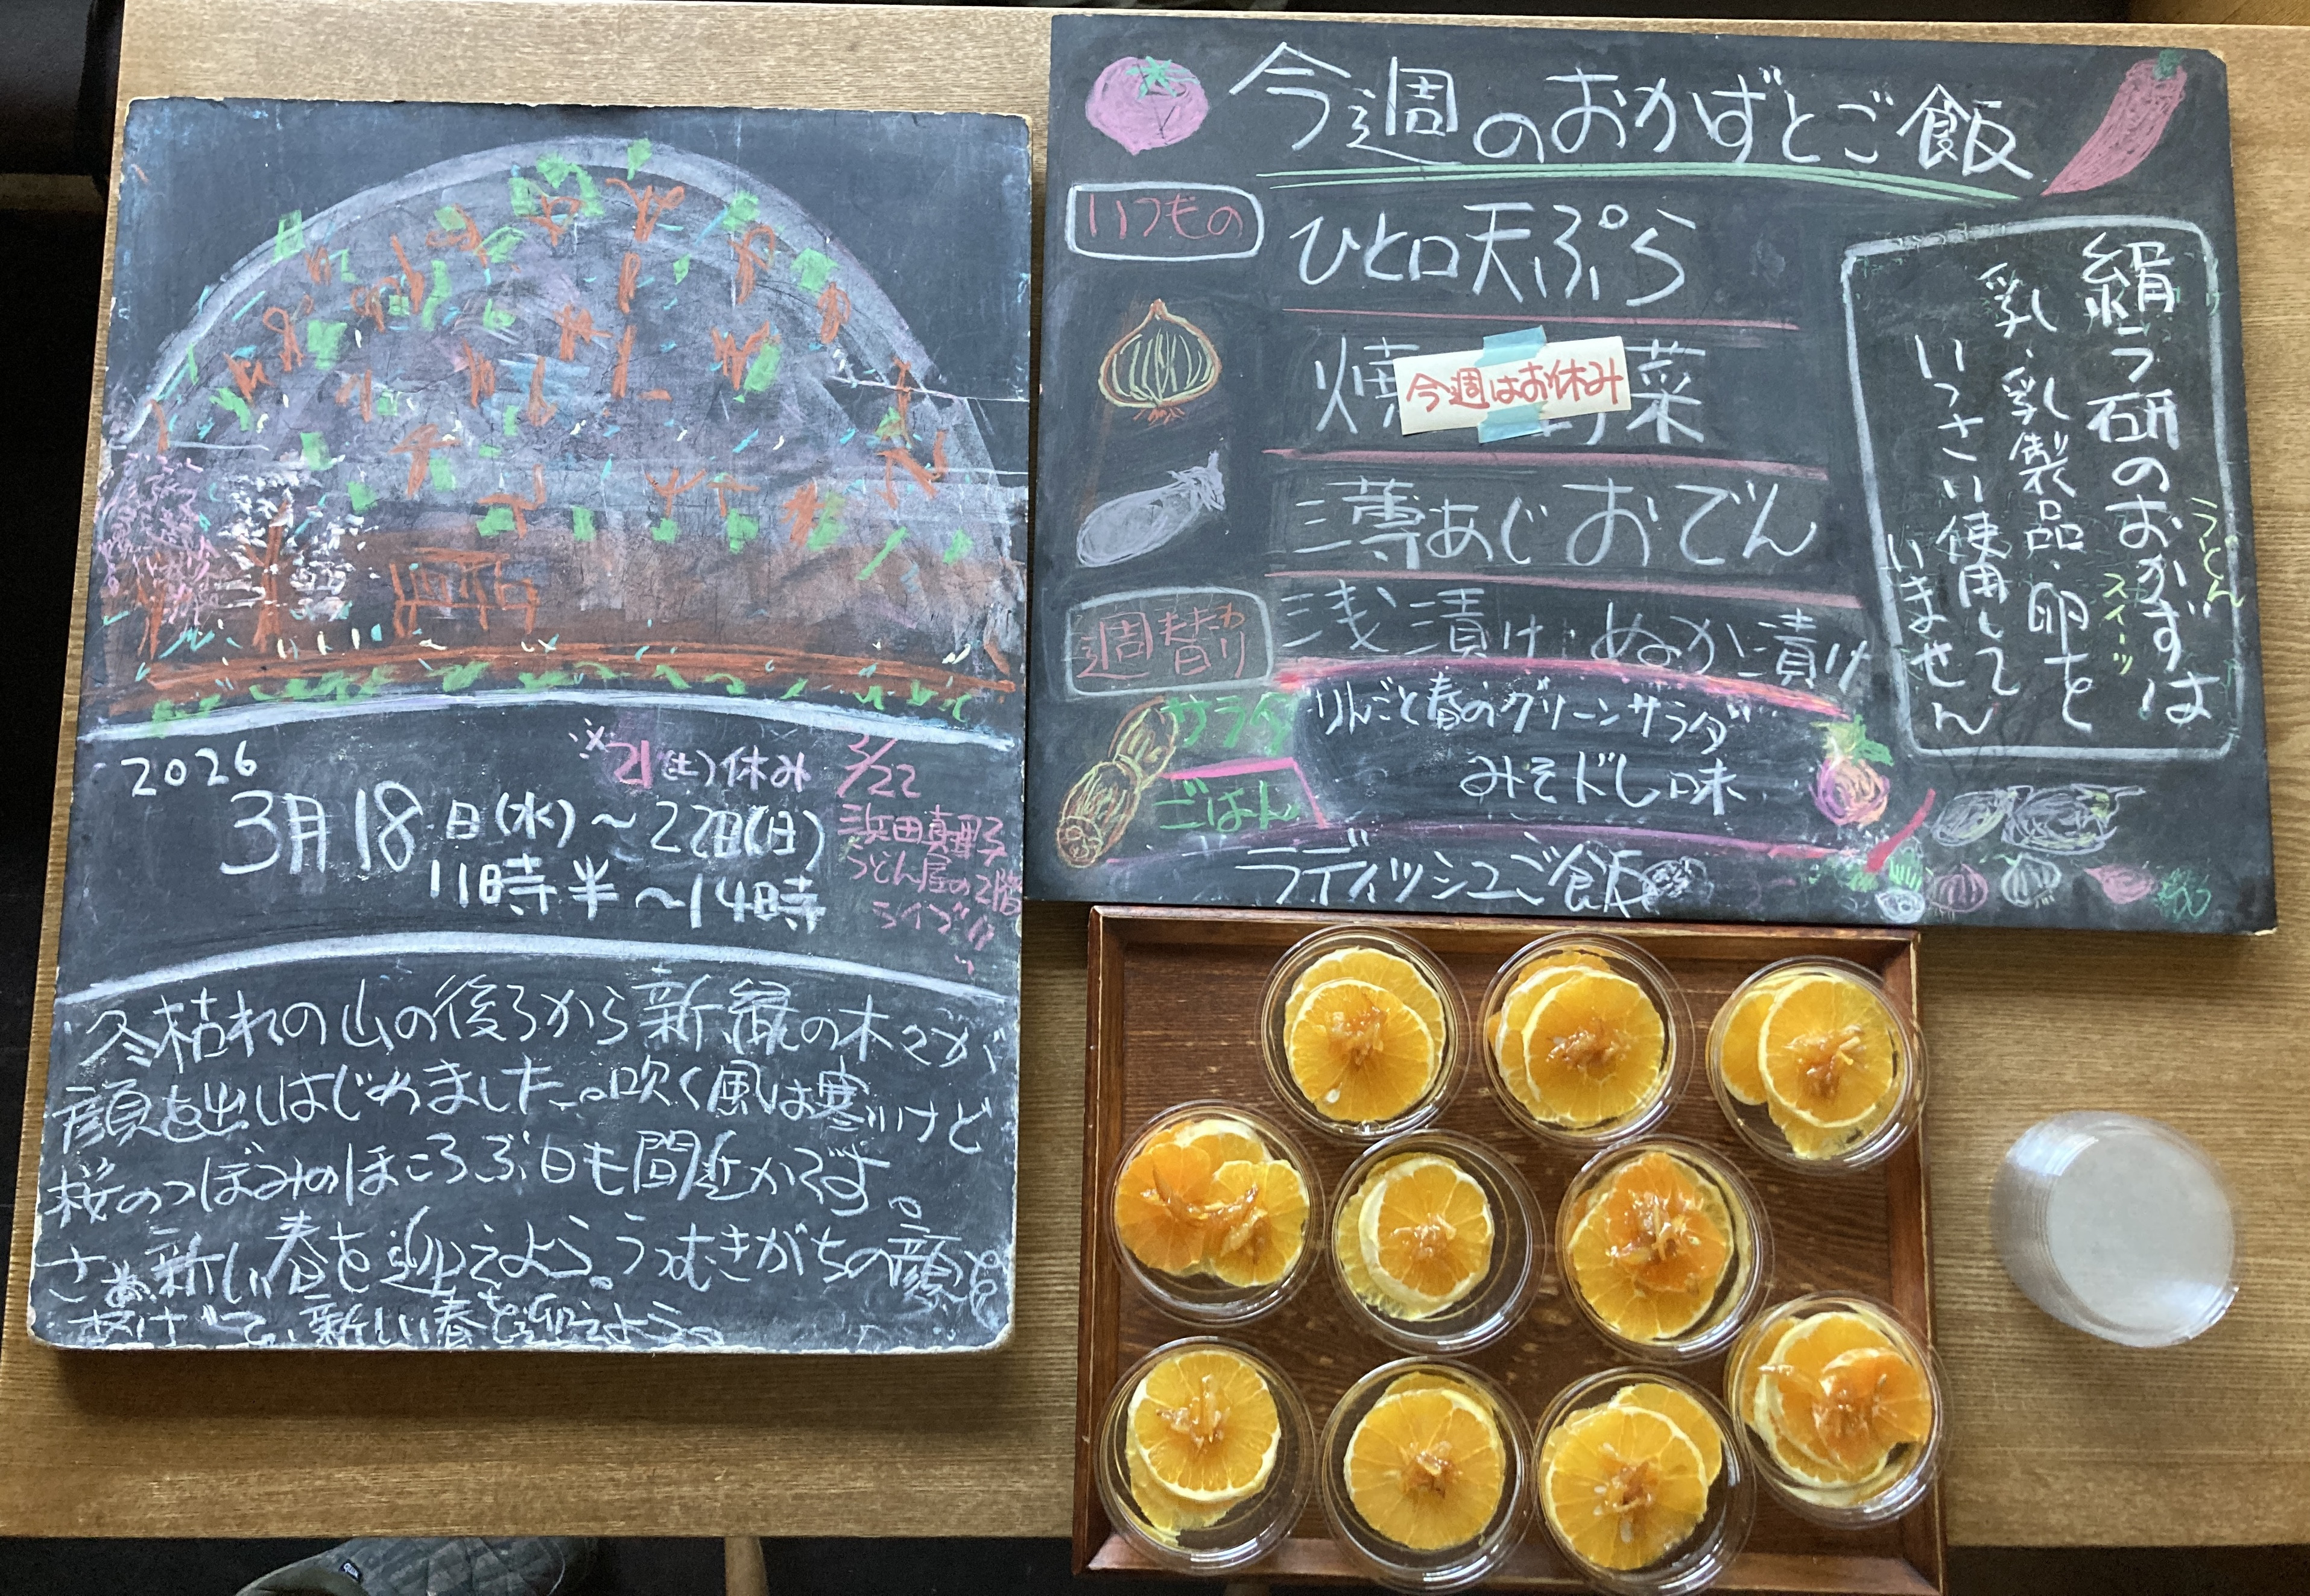 2026
※21(土)休み
3月18日(水)～22日(日)
11時半～14時
3/22
浜田真理子
うどん屋の2階
ライブ!!
冬枯れの山の後ろから新緑の木々が
顔を出しはじめました。吹く風は寒いけど
桜のつぼみのほころぶ日も間近かです。
さぁ新しい春を迎えよう。うつむきがちの顔を
あげて、新しい春を迎えよう。
今週のおかずとご飯
いつもの
ひと口天ぷら
焼 菜
今週はお休み
あじおでん
浅漬け・ぬか漬け
週替わり
サラダ
りんごと春のグリーンサラダ
みそドレ味
ごはん
ラディッシュご飯
絹ラ研のおかずは
うどん
スイーツ
乳、乳製品、卵を
いっさい使用して
いません